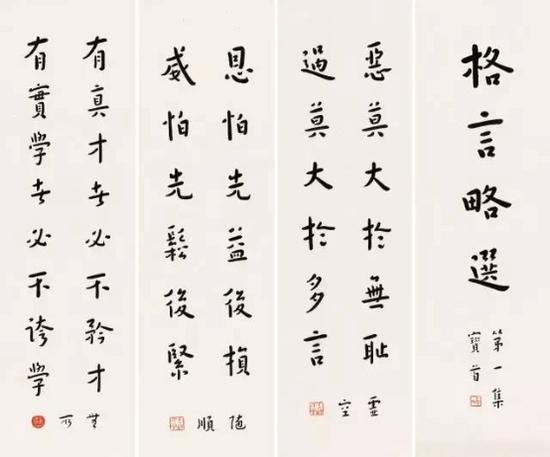 格言略選
第一集
寶首
惡莫大於無耻
過莫大於多言
空
恩怕先益後損
威怕先鬆後緊
隨
順
有真才者必不矜才
有實学者必不誇学
無
所